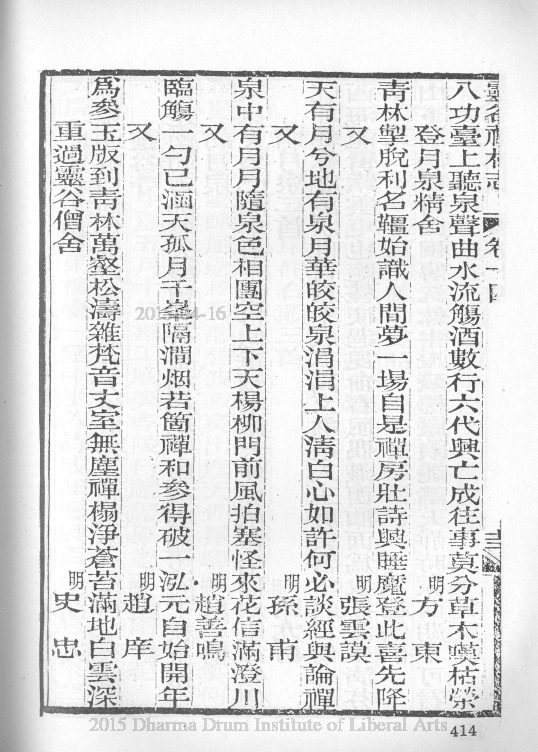 靈谷禪林志 卷十四
八功臺上聽泉聲曲水流觴酒數行六代興亡成往事莫分草木嘆枯榮
登月泉精舍 明 方東
靑林掣脫利名韁始識人間夢一場自是禪房壯詩興睡魔登此喜先降
又 明 張雲謨
天有月兮地有泉月華皎皎泉涓涓上人淸白心如許何必談經與論禪
又 明 孫甫
泉中有月月隨泉色相團空上下天楊柳門前風拍塞怪來花信滿澄川
又 明 趙善鳴
臨觴一勺已涵天孤月千峯隔澗烟若箇禪和參得破一泓元自始開年
又 明 趙庠
爲參玉版到靑林萬壑松濤雜梵音丈室無塵禪榻淨蒼苔滿地白雲深
重過靈谷僧舍 明 史忠
414
2015-04-16
2015 Dharma Drum Institute of Liberal Arts